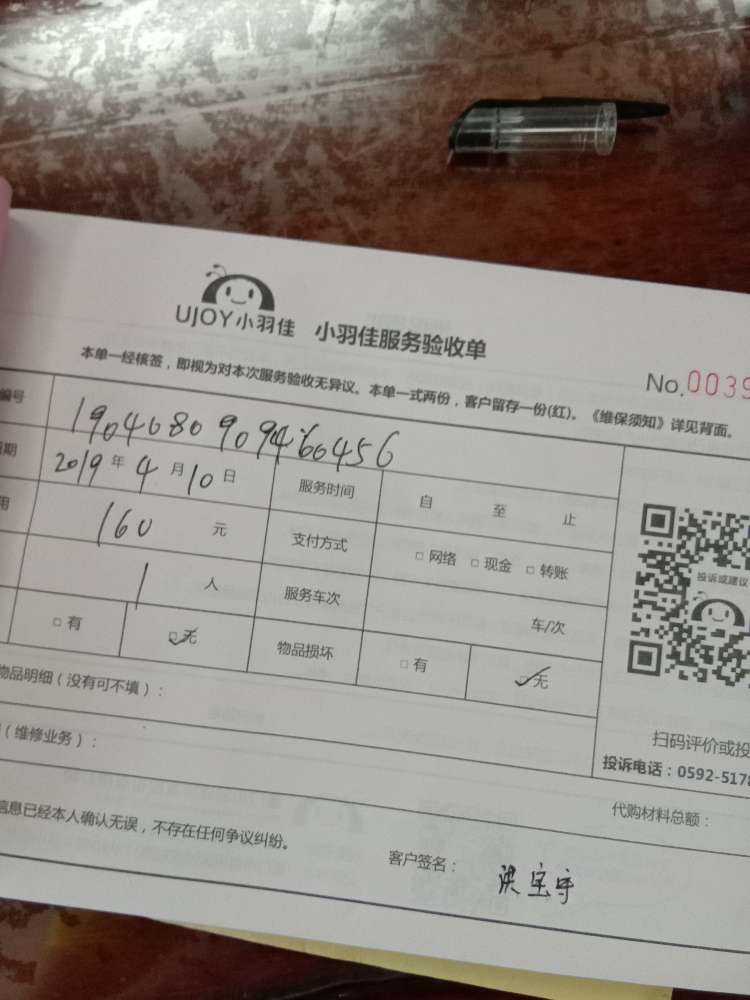 UJOY小羽佳 小羽佳服务验收单
No.0039
本单一经核签，即视为对本次服务验收无异议。本单一式两份，客户留存一份(红)。《维保须知》详见背面。
编号 1904080909466456
期 2019年4月10日 服务时间 自 至 止
用 160 元 支付方式 □网络 □现金 □转账
1 人 服务车次 车/次
□有 □无 物品损坏 □有 □无
投诉或建议
物品明细（没有可不填）：
（维修业务）：
扫码评价或投
投诉电话：0592-5178
代购材料总额：
信息已经本人确认无误，不存在任何争议纠纷。
客户签名： 洪宝宇